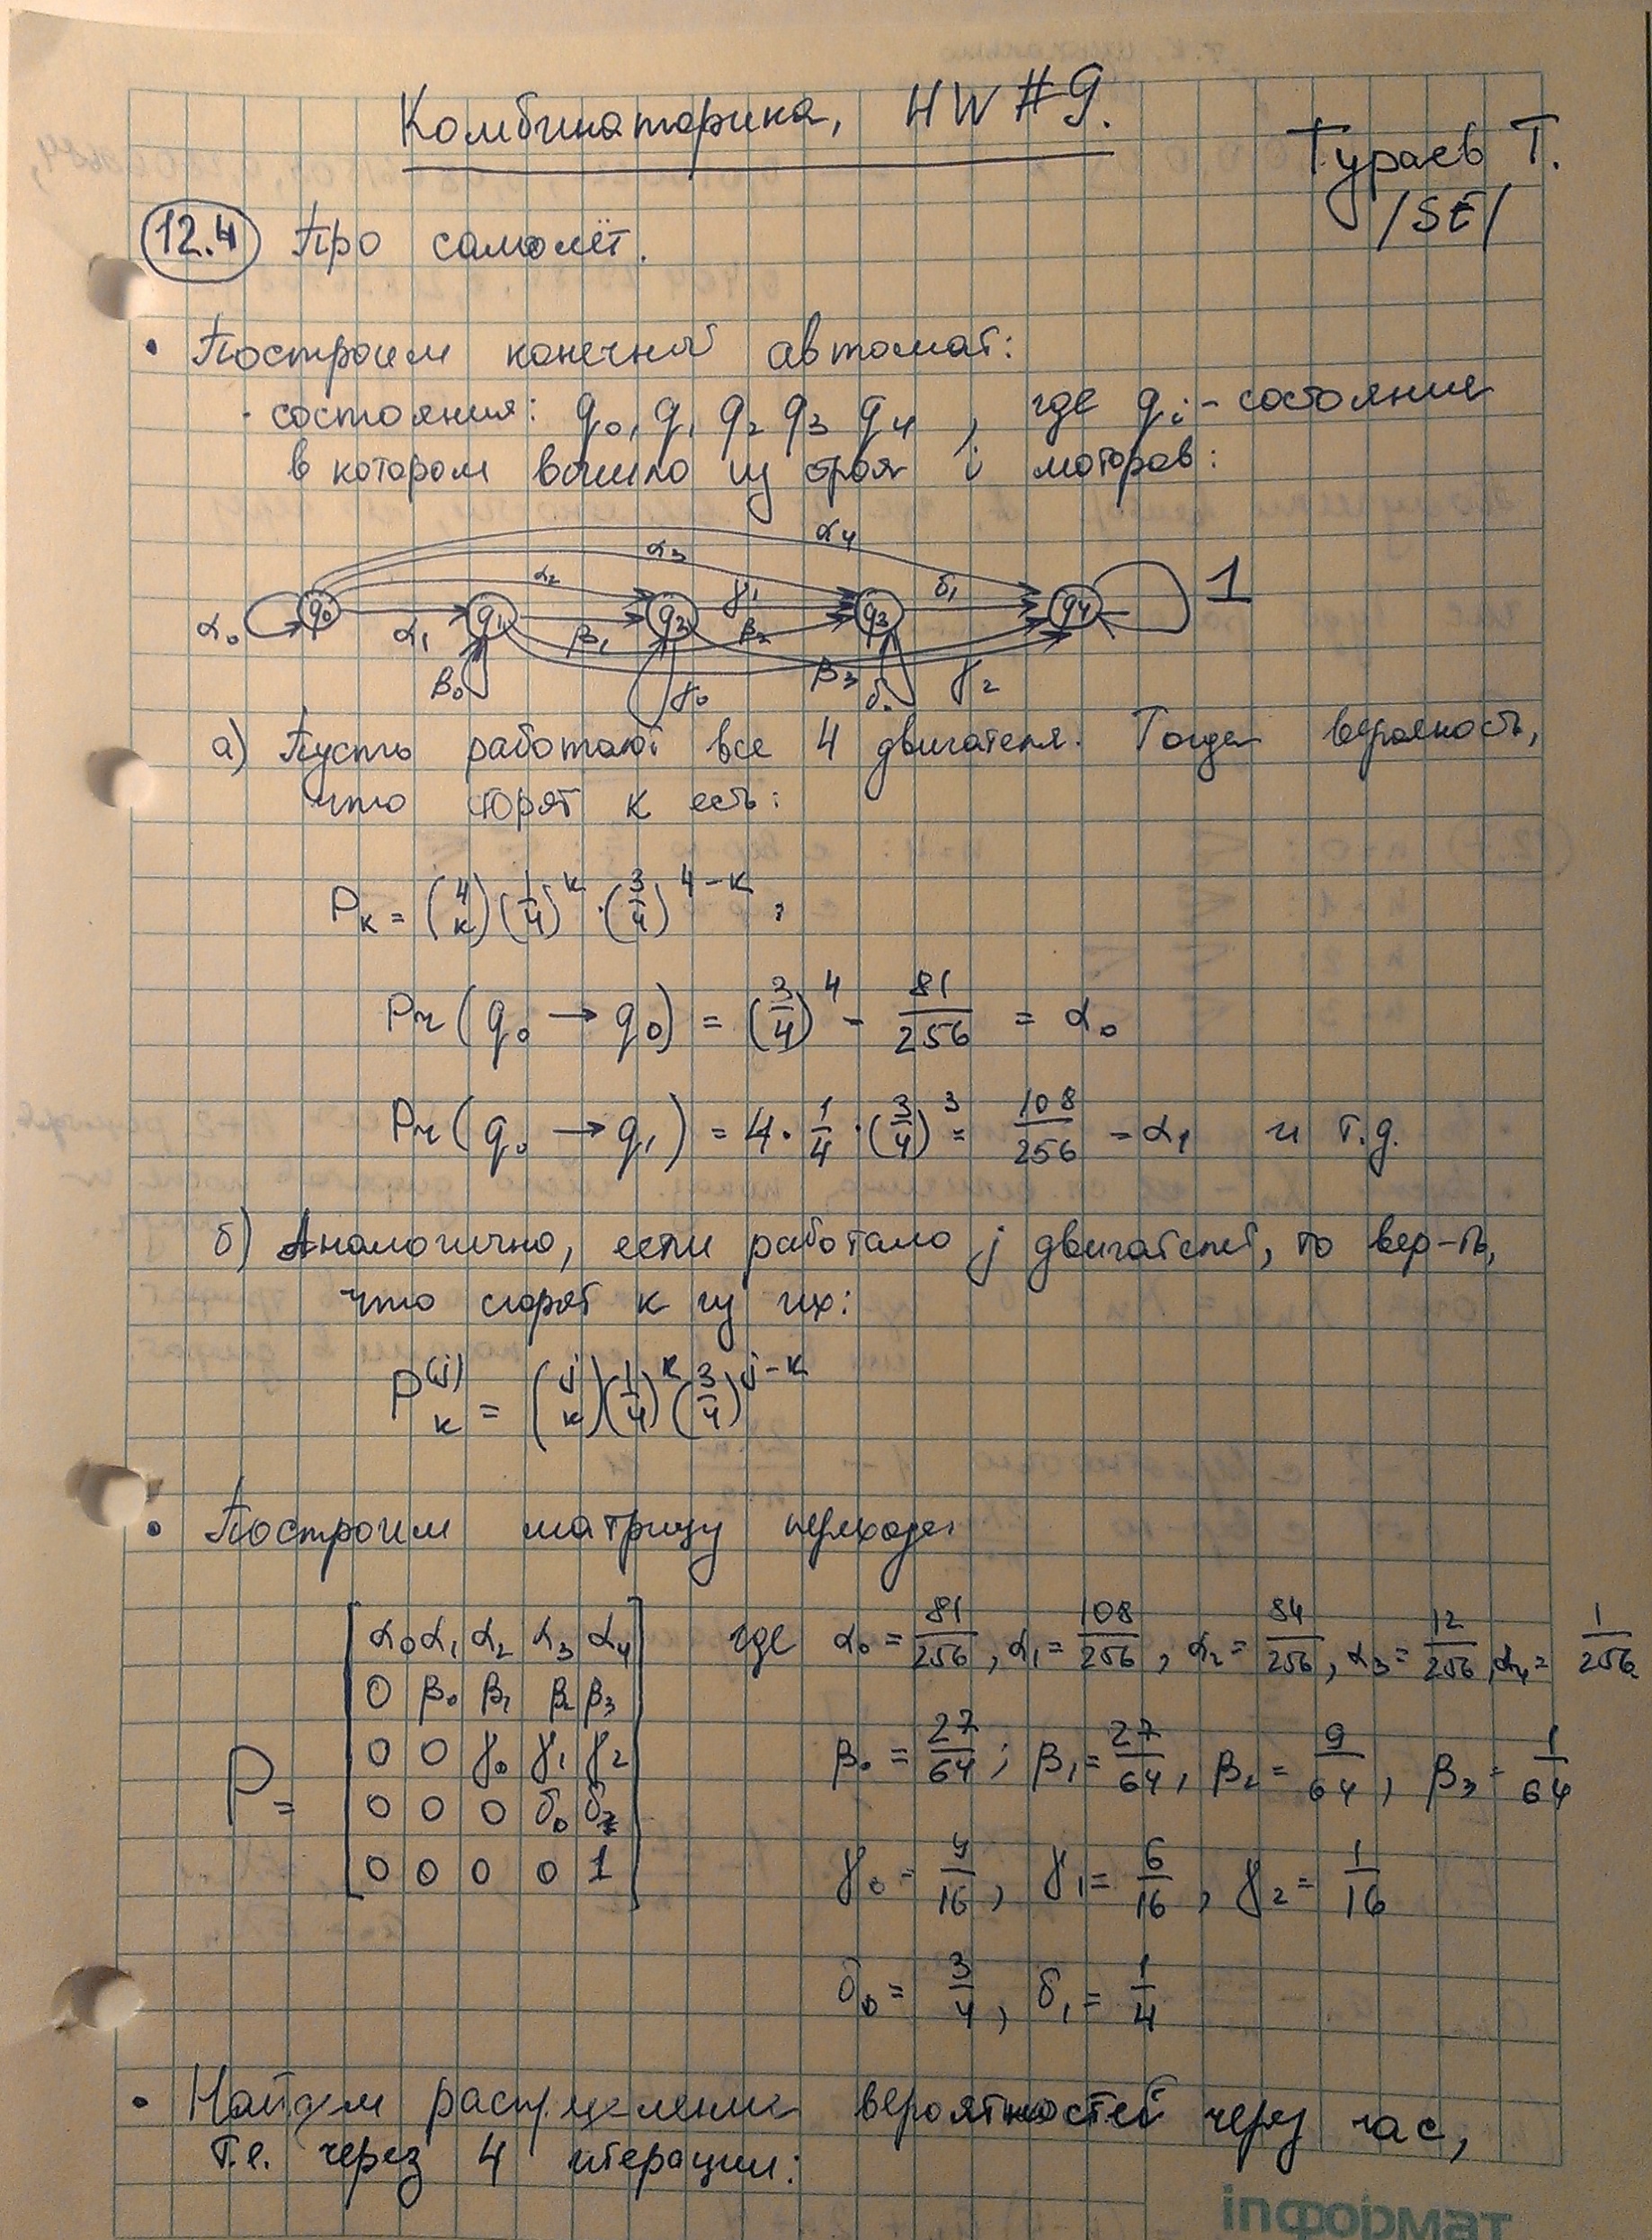 Комбинаторика, HW #9.
Тураев Т.
/SE/
12.4 Про самолёт.
• Построим конечный автомат:
· состояния: q₀, q₁ q₂ q₃ q₄ , где qᵢ - состояние
в котором вышло из строя i моторов:
α₄
α₃
α₂ γ₁ δ₁
α₀ q₀ α₁ q₁ β₁ q₂ β₂ q₃ q₄ 1
β₀ γ₀ β₃ δ₀ γ₂
а) Пусть работают все 4 двигателя. Тогда вероятность,
что сгорят k есть:
Pₖ = (4 k) (1/4)^k · (3/4)^(4-k) ;
Pr (q₀ → q₀) = (3/4)^4 - 81/256 = α₀
Pr (q₀ → q₁) = 4 · 1/4 · (3/4)^3 = 108/256 = α₁ и т.д.
б) Аналогично, если работало j двигателей, то вер-ть,
что сгорят k из них:
P^(j)ₖ = (j k) (1/4)^k (3/4)^(j-k)
• Построим матрицу перехода:
P = [ α₀ α₁ α₂ α₃ α₄ где α₀ = 81/256 , α₁ = 108/256 , α₂ = 54/256 , α₃ = 12/256 , α₄ = 1/256
0 β₀ β₁ β₂ β₃ β₀ = 27/64 ; β₁ = 27/64 , β₂ = 9/64 , β₃ = 1/64
0 0 γ₀ γ₁ γ₂
0 0 0 δ₀ δ₁
0 0 0 0 1 ] γ₀ = 9/16 , γ₁ = 6/16 , γ₂ = 1/16
δ₀ = 3/4 , δ₁ = 1/4
• Найдем распределение вероятностей через час,
т.е. через 4 итерации:
інформат